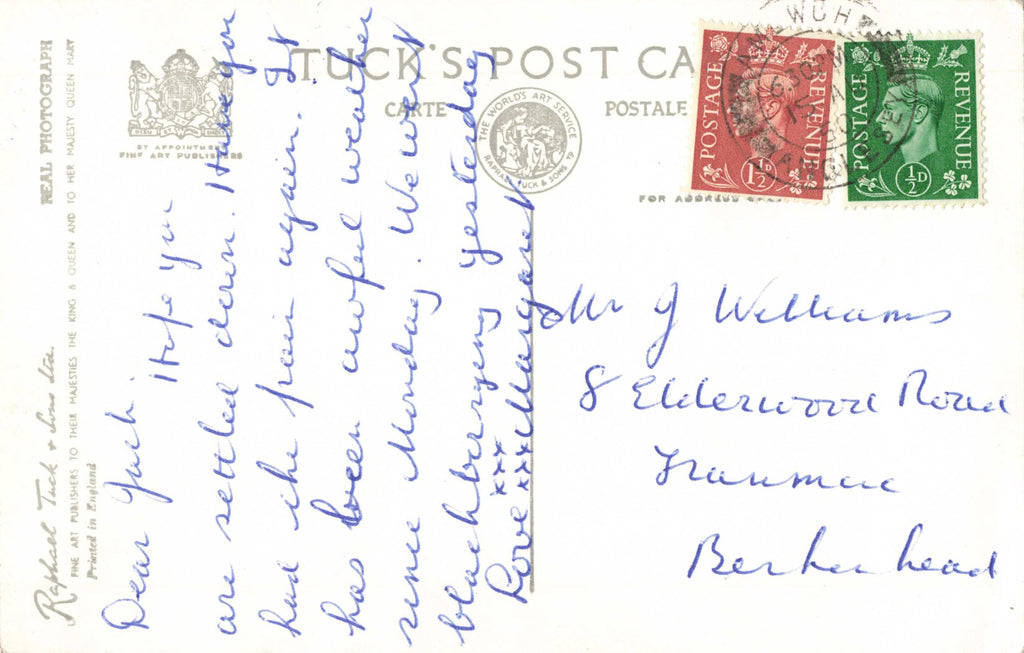 TUCK'S POST CA
CARTE POSTALE
THE WORLD'S ART SERVICE
RAPHAEL TUCK & SONS LTD
BY APPOINTMENT
FINE ART PUBLISHERS
FOR ADDRESS ONLY
REAL PHOTOGRAPH
Raphael Tuck & Sons Ltd.
FINE ART PUBLISHERS TO THEIR MAJESTIES THE KING & QUEEN AND TO HER MAJESTY QUEEN MARY
Printed in England
Dear Jack.
Hope you
are settled down. Have you
had the pain again. It
has been awful weather
since Monday. We went
blackberrying yesterday
xxx
Love xxx Margaret
POSTAGE REVENUE
1½D
POSTAGE REVENUE
½D
6 30PM
Mr J Williams
8 Elderwood Road
Tranmere
Berkenhead